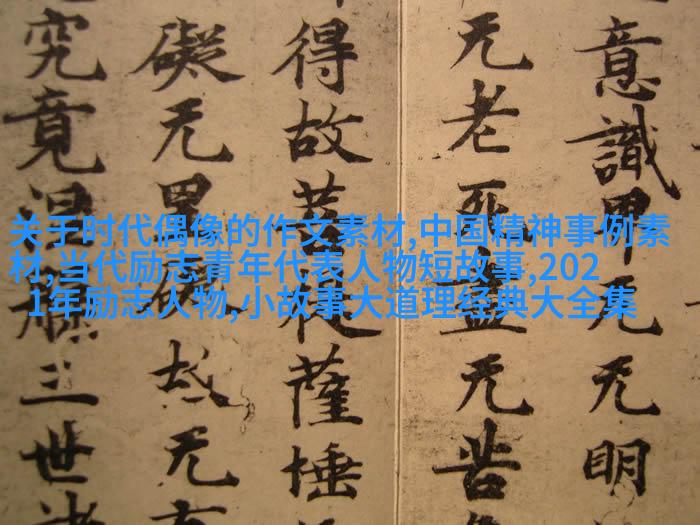 关于时代偶像的作文素材,中国精神事例素
材,当代励志青年代表人物短故事,202
1年励志人物,小故事大道理经典大全集
意識界无无明
无老死盡无苦
得故菩提薩埵
礙无罣礙故无有
究竟涅槃三世諸